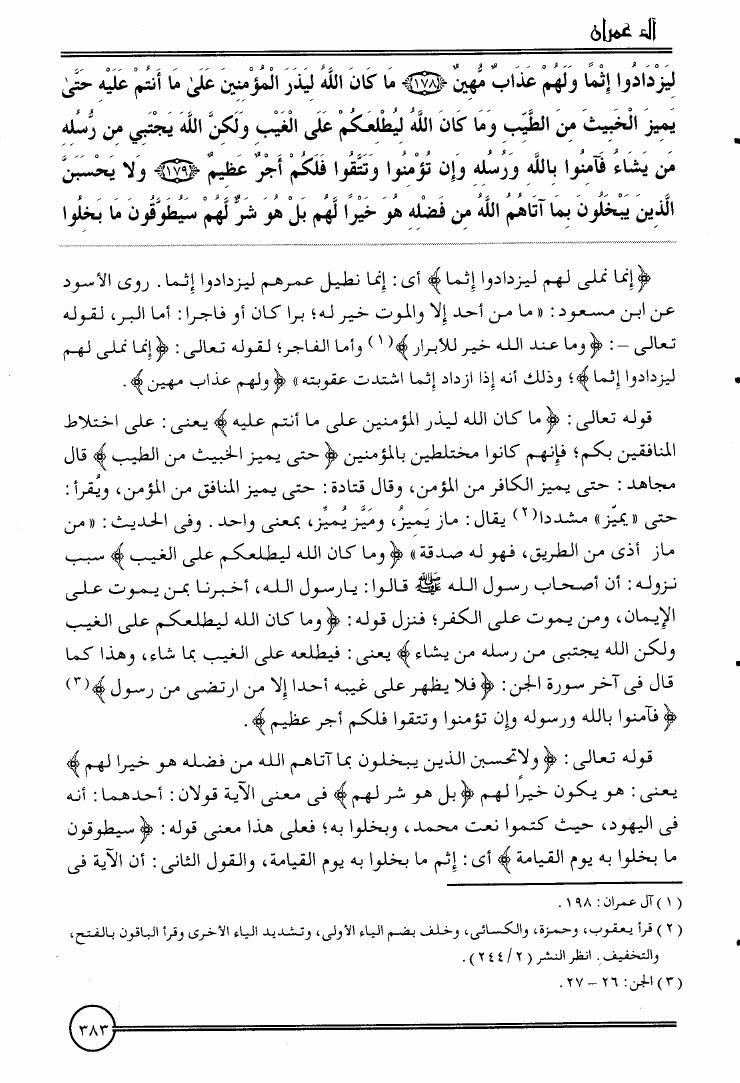 آل عمران
لِيَزْدَادُوا إِثْمًا وَلَهُمْ عَذَابٌ مُّهِينٌ ﴿١٧٨﴾ مَا كَانَ اللَّهُ لِيَذَرَ الْمُؤْمِنِينَ عَلَىٰ مَا أَنتُمْ عَلَيْهِ حَتَّىٰ
يَمِيزَ الْخَبِيثَ مِنَ الطَّيِّبِ وَمَا كَانَ اللَّهُ لِيُطْلِعَكُمْ عَلَى الْغَيْبِ وَلَكِنَّ اللَّهَ يَجْتَبِي مِن رُّسُلِهِ
مَن يَشَاءُ فَآمِنُوا بِاللَّهِ وَرُسُلِهِ وَإِن تُؤْمِنُوا وَتَتَّقُوا فَلَكُمْ أَجْرٌ عَظِيمٌ ﴿١٧٩﴾ وَلا يَحْسَبَنَّ
الَّذِينَ يَبْخَلُونَ بِمَا آتَاهُمُ اللَّهُ مِن فَضْلِهِ هُوَ خَيْرًا لَّهُم بَلْ هُوَ شَرٌّ لَّهُمْ سَيُطَوَّقُونَ مَا بَخِلُوا
﴿ إنما نملى لهم ليزدادوا إثما ﴾ أى : إنما نطيل عمرهم ليزدادوا إثما . روى الأسود
عن ابن مسعود : « ما من أحد إلا والموت خير له؛ برا كان أو فاجرا : أما البر، لقوله
تعالى – : ﴿ وما عند الله خير للأبرار ﴾(١) وأما الفاجر؛ لقوله تعالى : ﴿ إنما نملى لهم
ليزدادوا إثما ﴾؛ وذلك أنه إذا ازداد إثما اشتدت عقوبته » ﴿ ولهم عذاب مهين ﴾ .
قوله تعالى : ﴿ ما كان الله ليذر المؤمنين على ما أنتم عليه ﴾ يعنى : على اختلاط
المنافقين بكم؛ فإنهم كانوا مختلطين بالمؤمنين ﴿ حتى يميز الخبيث من الطيب ﴾ قال
مجاهد : حتى يميز الكافر من المؤمن، وقال قتادة : حتى يميز المنافق من المؤمن، ويُقرأ :
حتى « يميّز » مشددا(٢) يقال : ماز يَمِيزُ، ومَيَّز يُميِّز، بمعنى واحد . وفى الحديث : « من
ماز أذى من الطريق، فهو له صدقة » ﴿ وما كان الله ليطلعكم على الغيب ﴾ سبب
نزوله : أن أصحاب رسول الله ﷺ قالوا : يارسول الله، أخبرنا بمن يموت على
الإيمان، ومن يموت على الكفر؛ فنزل قوله : ﴿ وما كان الله ليطلعكم على الغيب
ولكن الله يجتبى من رسله من يشاء ﴾ يعنى : فيطلعه على الغيب بما شاء، وهذا كما
قال فى آخر سورة الجن : ﴿ فلا يظهر على غيبه أحدا إلا من ارتضى من رسول ﴾(٣)
﴿ فآمنوا بالله ورسوله وإن تؤمنوا وتتقوا فلكم أجر عظيم ﴾ .
قوله تعالى : ﴿ ولاتحسبن الذين يبخلون بما آتاهم الله من فضله هو خيرا لهم ﴾
يعنى : هو يكون خيرًا لهم ﴿ بل هو شر لهم ﴾ فى معنى الآية قولان : أحدهما : أنه
فى اليهود، حيث كتموا نعت محمد، وبخلوا به؛ فعلى هذا معنى قوله : ﴿ سيطوقون
ما بخلوا به يوم القيامة ﴾ أى : إثم ما بخلوا به يوم القيامة، والقول الثانى : أن الآية فى
(١) آل عمران : ١٩٨ .
(٢) قرأ يعقوب، وحمزة، والكسائى، وخلف بضم الياء الأولى، وتشديد الياء الأخرى وقرأ الباقون بالفتح،
والتخفيف . انظر النشر (٢/ ٢٤٤) .
(٣) الجن : ٢٦ – ٢٧ .
٣٨٣